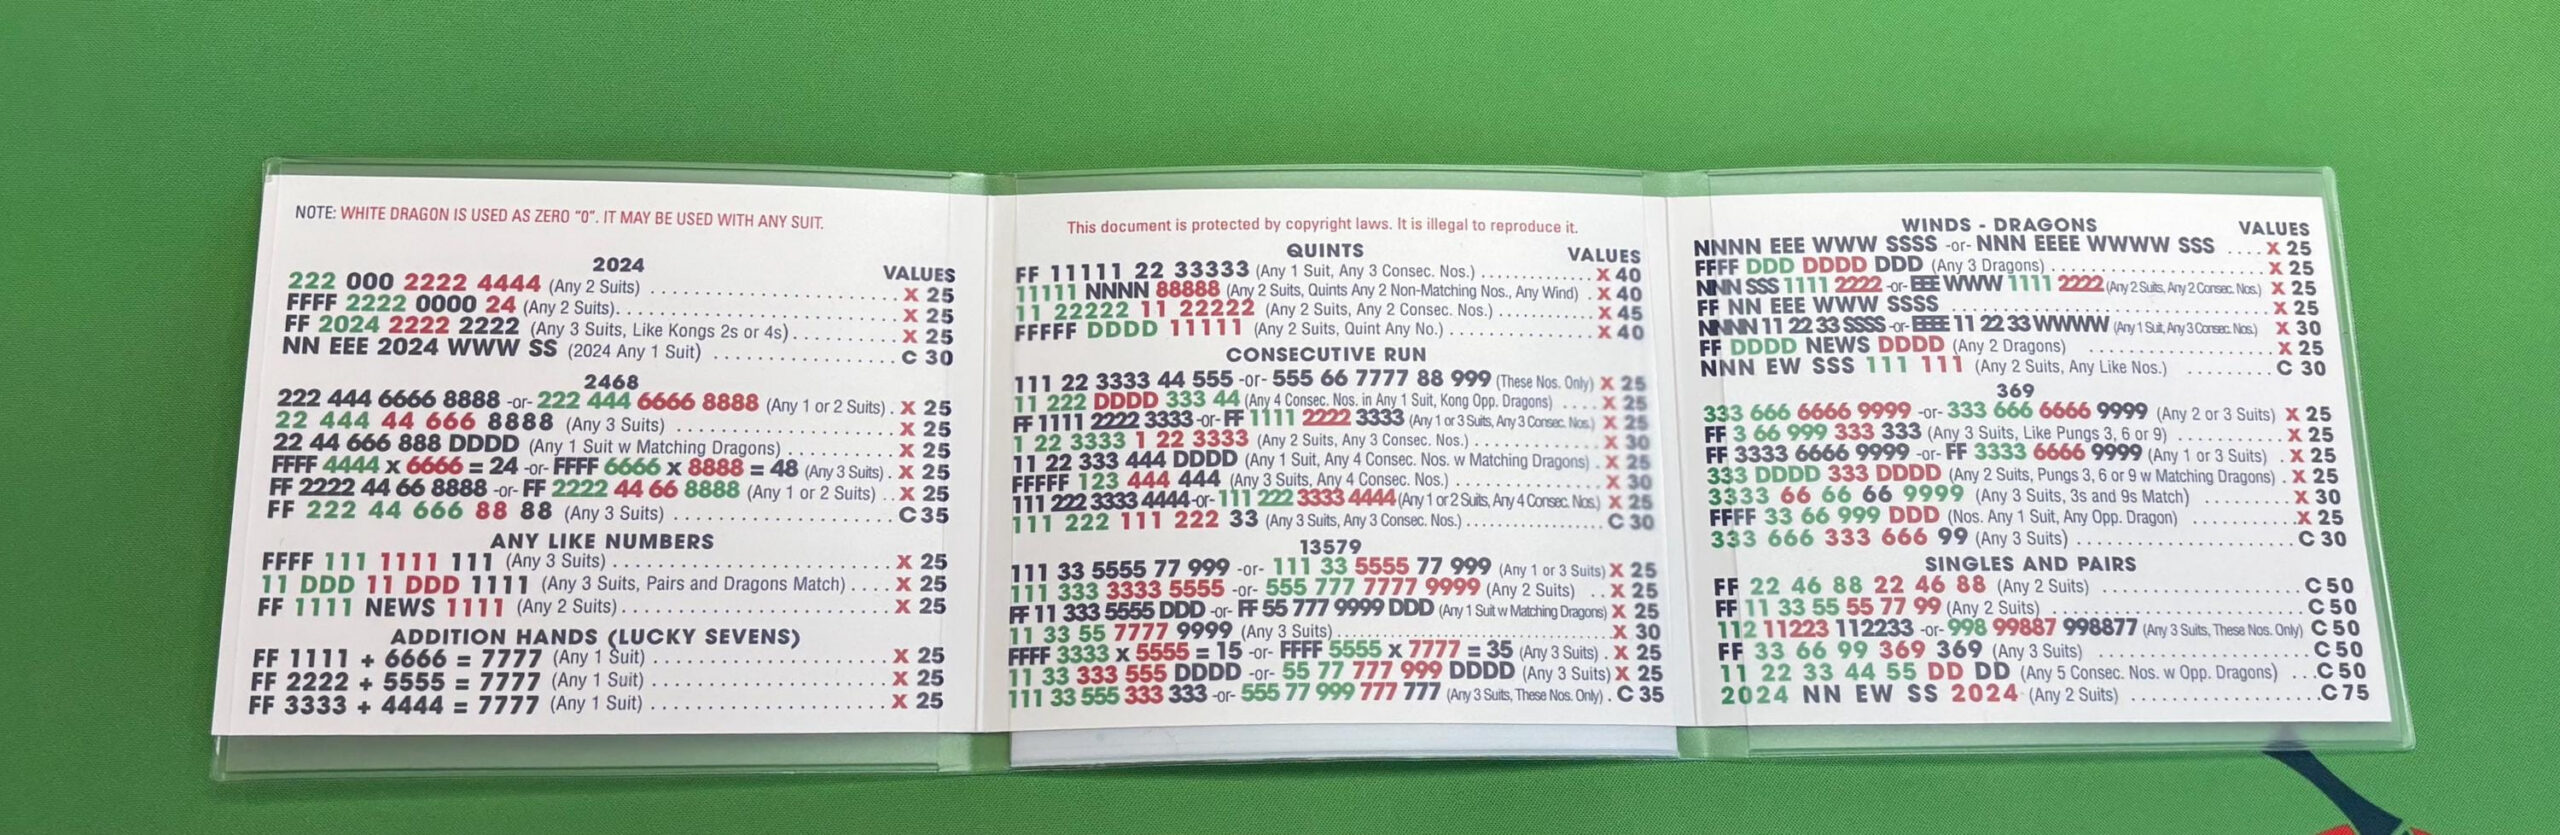 NOTE: WHITE DRAGON IS USED AS ZERO "0". IT MAY BE USED WITH ANY SUIT.
2024
VALUES
222 000 2222 4444 (Any 2 Suits) X 25
FFFF 2222 0000 24 (Any 2 Suits) X 25
FF 2024 2222 2222 (Any 3 Suits, Like Kongs 2s or 4s) X 25
NN EEE 2024 WWW SS (2024 Any 1 Suit) C 30
2468
222 444 6666 8888 -or- 222 444 6666 8888 (Any 1 or 2 Suits) X 25
22 444 44 666 8888 (Any 3 Suits) X 25
22 44 666 888 DDDD (Any 1 Suit w Matching Dragons) X 25
FFFF 4444 x 6666 = 24 -or- FFFF 6666 x 8888 = 48 (Any 3 Suits) X 25
FF 2222 44 66 8888 -or- FF 2222 44 66 8888 (Any 1 or 2 Suits) X 25
FF 222 44 666 88 88 (Any 3 Suits) C 35
ANY LIKE NUMBERS
FFFF 111 1111 111 (Any 3 Suits) X 25
11 DDD 11 DDD 1111 (Any 3 Suits, Pairs and Dragons Match) X 25
FF 1111 NEWS 1111 (Any 2 Suits) X 25
ADDITION HANDS (LUCKY SEVENS)
FF 1111 + 6666 = 7777 (Any 1 Suit) X 25
FF 2222 + 5555 = 7777 (Any 1 Suit) X 25
FF 3333 + 4444 = 7777 (Any 1 Suit) X 25
This document is protected by copyright laws. It is illegal to reproduce it.
QUINTS
VALUES
FF 11111 22 33333 (Any 1 Suit, Any 3 Consec. Nos.) X 40
11111 NNNN 88888 (Any 2 Suits, Quints Any 2 Non-Matching Nos., Any Wind) X 40
11 22222 11 22222 (Any 2 Suits, Any 2 Consec. Nos.) X 45
FFFFF DDDD 11111 (Any 2 Suits, Quint Any No.) X 40
CONSECUTIVE RUN
111 22 3333 44 555 -or- 555 66 7777 88 999 (These Nos. Only) X 25
11 222 DDDD 333 44 (Any 4 Consec. Nos. in Any 1 Suit, Kong Opp. Dragons) X 25
FF 1111 2222 3333 -or- FF 1111 2222 3333 (Any 1 or 3 Suits, Any 3 Consec. Nos.) X 25
1 22 3333 1 22 3333 (Any 2 Suits, Any 3 Consec. Nos.) X 30
11 22 333 444 DDDD (Any 1 Suit, Any 4 Consec. Nos. w Matching Dragons) X 25
FFFFF 123 444 444 (Any 3 Suits, Any 4 Consec. Nos.) X 30
111 222 3333 4444 -or- 111 222 3333 4444 (Any 1 or 2 Suits, Any 4 Consec. Nos.) X 25
111 222 111 222 33 (Any 3 Suits, Any 3 Consec. Nos.) C 30
13579
111 33 5555 77 999 -or- 111 33 5555 77 999 (Any 1 or 3 Suits) X 25
111 333 3333 5555 -or- 555 777 7777 9999 (Any 2 Suits) X 25
FF 11 333 5555 DDD -or- FF 55 777 9999 DDD (Any 1 Suit w Matching Dragons) X 25
11 33 55 7777 9999 (Any 3 Suits) X 30
FFFF 3333 x 5555 = 15 -or- FFFF 5555 x 7777 = 35 (Any 3 Suits) X 25
11 33 333 555 DDDD -or- 55 77 777 999 DDDD (Any 3 Suits) X 25
111 33 555 333 333 -or- 555 77 999 777 777 (Any 3 Suits, These Nos. Only) C 35
WINDS - DRAGONS
VALUES
NNNN EEE WWW SSSS -or- NNN EEEE WWWW SSS X 25
FFFF DDD DDDD DDD (Any 3 Dragons) X 25
NNN SSS 1111 2222 -or- EEE WWW 1111 2222 (Any 2 Suits, Any 2 Consec. Nos.) X 25
FF NN EEE WWW SSSS X 25
NNNN 11 22 33 SSSS -or- EEEE 11 22 33 WWWW (Any 1 Suit, Any 3 Consec. Nos.) X 30
FF DDDD NEWS DDDD (Any 2 Dragons) X 25
NNN EW SSS 111 111 (Any 2 Suits, Any Like Nos.) C 30
369
333 666 6666 9999 -or- 333 666 6666 9999 (Any 2 or 3 Suits) X 25
FF 3 66 999 333 333 (Any 3 Suits, Like Pungs 3, 6 or 9) X 25
FF 3333 6666 9999 -or- FF 3333 6666 9999 (Any 1 or 3 Suits) X 25
333 DDDD 333 DDDD (Any 2 Suits, Pungs 3, 6 or 9 w Matching Dragons) X 25
3333 66 66 66 9999 (Any 3 Suits, 3s and 9s Match) X 30
FFFF 33 66 999 DDD (Nos. Any 1 Suit, Any Opp. Dragon) X 25
333 666 333 666 99 (Any 3 Suits) C 30
SINGLES AND PAIRS
FF 22 46 88 22 46 88 (Any 2 Suits) C 50
FF 11 33 55 55 77 99 (Any 2 Suits) C 50
112 11223 112233 -or- 998 99887 998877 (Any 3 Suits, These Nos. Only) C 50
FF 33 66 99 369 369 (Any 3 Suits) C 50
11 22 33 44 55 DD DD (Any 5 Consec. Nos. w Opp. Dragons) C 50
2024 NN EW SS 2024 (Any 2 Suits) C 75